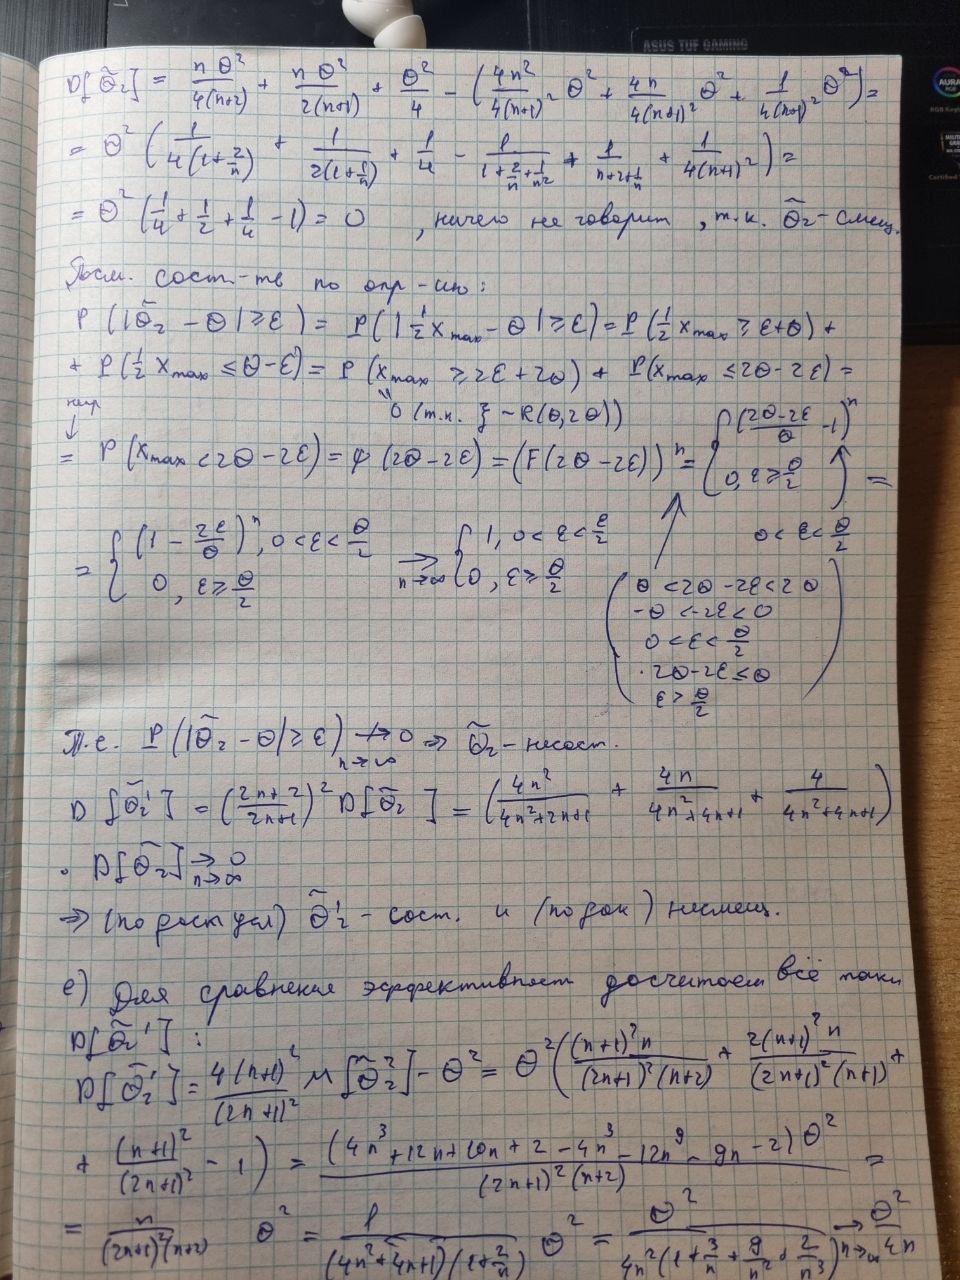 ASUS TUF GAMING
AURA
RGB
D[θ̃₂] = nθ²/4(n+2) + nθ²/2(n+1) + θ²/4 - (4n²/4(n+1)² θ² + 4n/4(n+1)² θ² + 1/4(n+1)² θ²) =
= θ² (1/4(1+2/n) + 1/2(1+1/n) + 1/4 - 1/(1+2/n+1/n²) + 1/(n+2+1/n) + 1/4(n+1)²) =
= θ² (1/4 + 1/2 + 1/4 - 1) = 0 , ничего не говорит, т.к. θ̃₂ - смещ.
Посм. сост-ть по опр-ию:
P(|θ̃₂ - θ| ≥ ε) = P(|1/2 x_max - θ| ≥ ε) = P(1/2 x_max ≥ ε+θ) +
+ P(1/2 x_max ≤ θ-ε) = P(x_max ≥ 2ε+2θ) + P(x_max ≤ 2θ-2ε) =
непр
0 (т.к. ξ ~ R(θ,2θ))
= P(x_max < 2θ-2ε) = φ(2θ-2ε) = (F(2θ-2ε))ⁿ = { ((2θ-2ε)/θ - 1)ⁿ
0, ε ≥ θ/2 =
0 < ε < θ/2
= { (1 - 2ε/θ)ⁿ, 0 < ε < θ/2
0, ε ≥ θ/2
→ n→∞ { 1, 0 < ε < ε/2
0, ε ≥ θ/2
( θ < 2θ-2ε < 2θ
-θ < -2ε < 0
0 < ε < θ/2
2θ-2ε ≤ θ
ε > θ/2 )
Т.е. P(|θ̃₂ - θ| ≥ ε) ↛ n→∞ 0 ⇒ θ̃₂ - несост.
D[θ̃₂'] = ((2n+2)/(2n+1))² D[θ̃₂] = (4n²/(4n²+2n+1) + 4n/(4n²+4n+1) + 4/(4n²+4n+1))
· D[θ̃₂] → n→∞ 0
⇒ (по дост усл) θ̃₂' - сост. и (по док) несмещ.
e) Для сравнения эффективност досчитаем всё таки
D[θ̃₂'] :
D[θ̃₂'] = 4(n+1)²/(2n+1)² M[θ̃₂²] - θ² = θ² ((n+1)²n/(2n+1)²(n+2) + 2(n+1)²n/(2n+1)²(n+1) +
+ (n+1)²/(2n+1)² - 1) = (4n³+12n+10n+2-4n³-12n⁹-9n-2)θ²/(2n+1)²(n+2) =
= n/(2n+1)²(n+2) θ² = 1/(4n²+4n+1)(1+2/n) θ² = θ²/4n²(1+3/n+9/n²+2/n³) → n→∞ θ²/4n